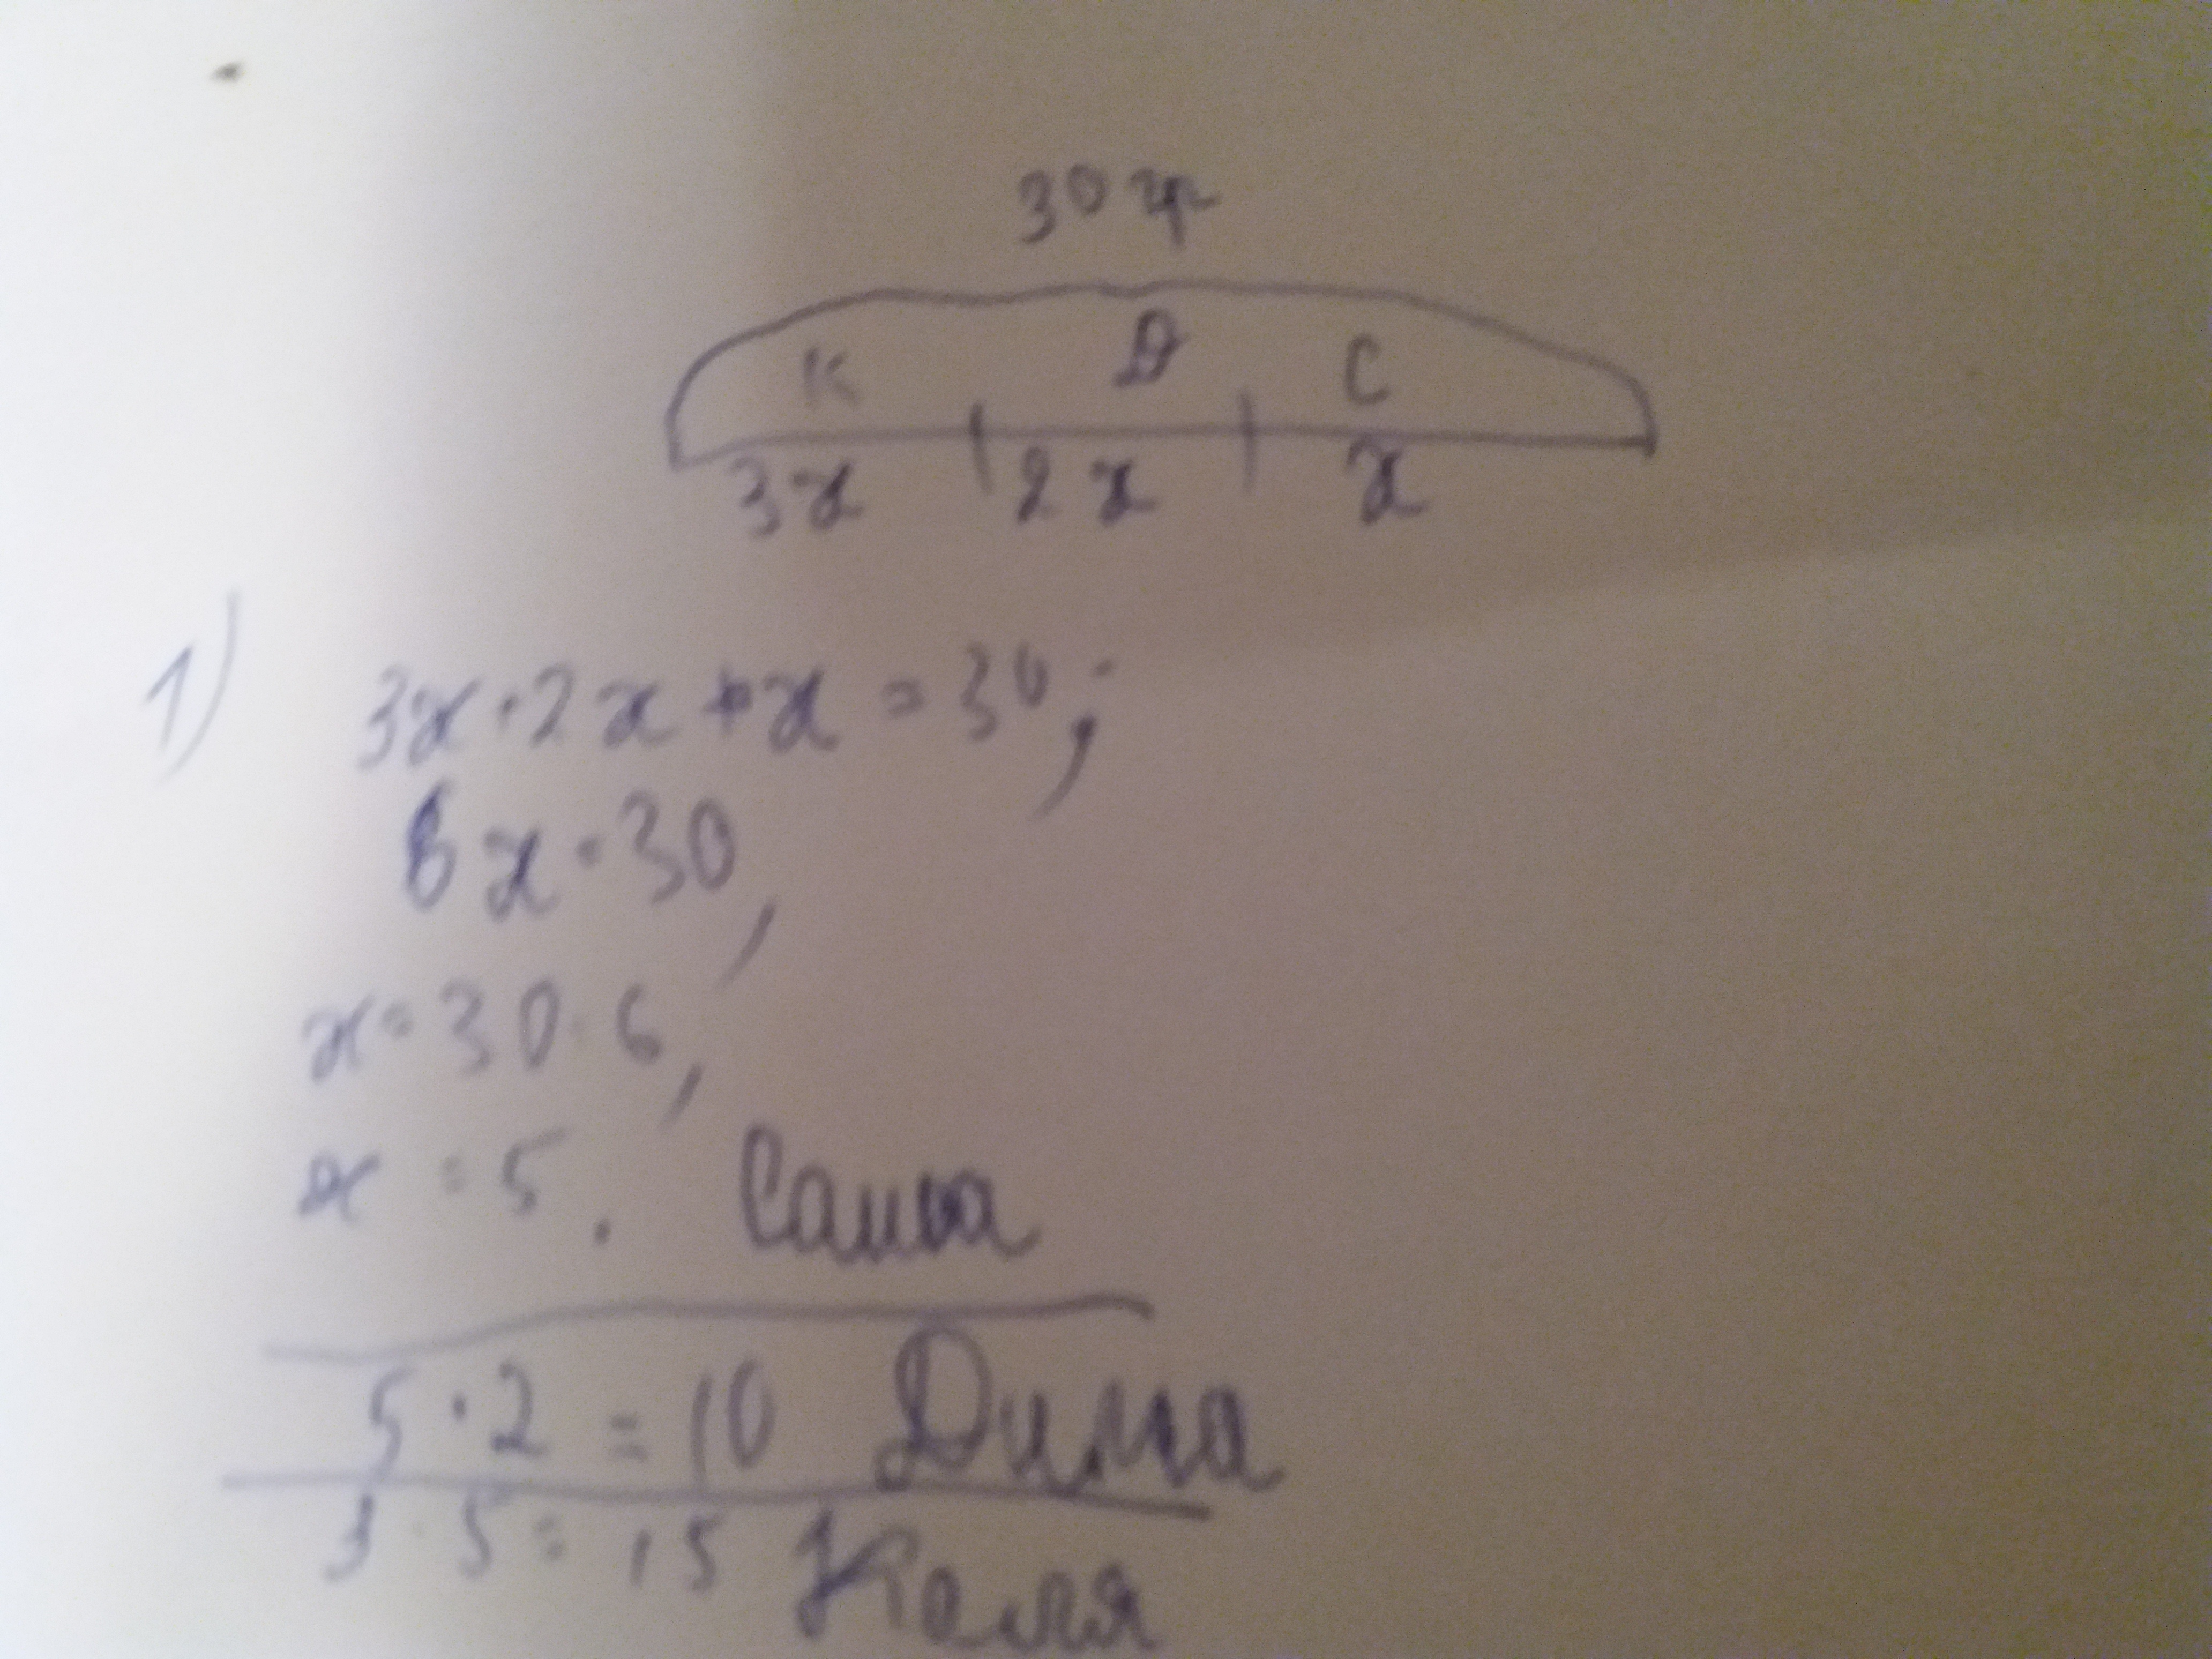 30 гр
К Д С
3x 2x x
1) 3x+2x+x=30;
6x=30,
x=30:6,
x=5. Саша
5·2=10 Дима
3·5=15 Коля